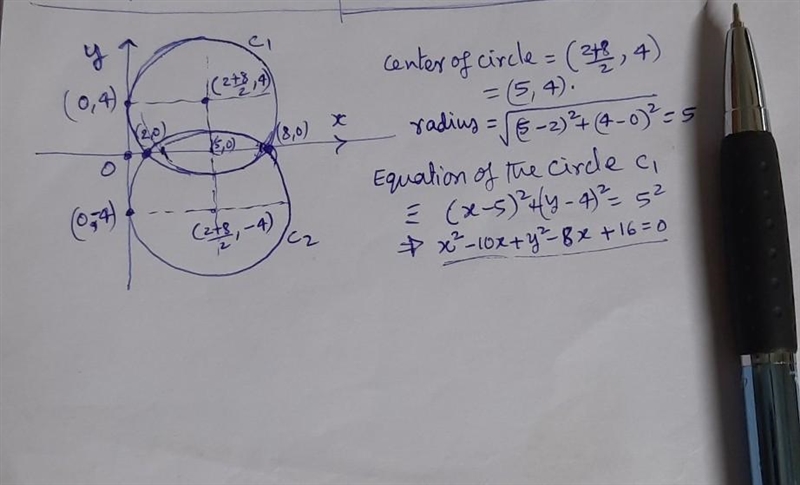 y
C₁
(2+8/2, 4)
(0,4)
(2,0)
(5,0)
(8,0)
x
O
(0,-4)
(2+8/2, -4)
C₂
center of circle = (2+8/2, 4)
= (5, 4).
radius = √(5-2)²+(4-0)² = 5
Equation of the circle C₁
≡ (x-5)²+(y-4)² = 5²
⇒ x²-10x+y²-8x+16=0